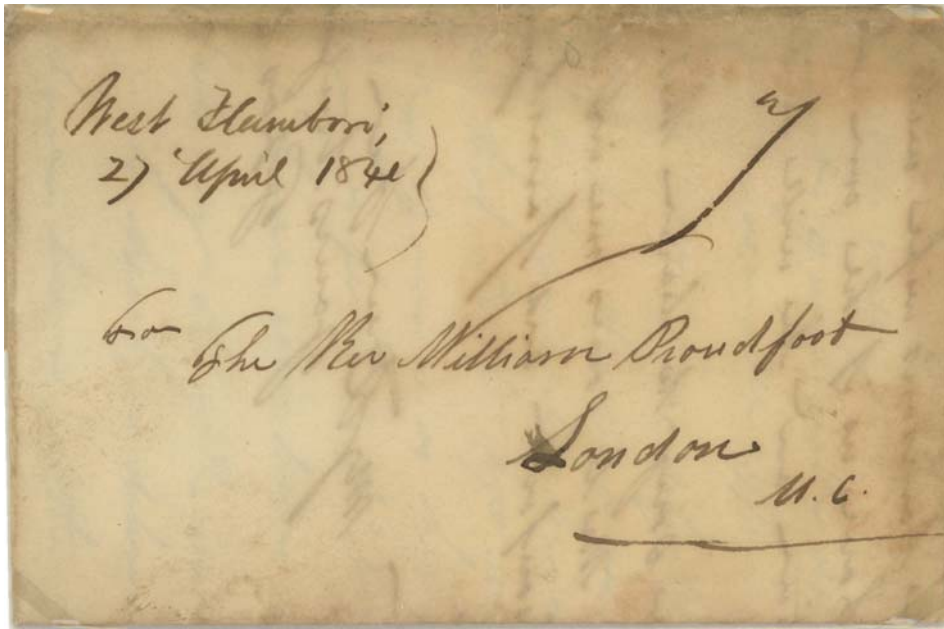 West Flamboro',
27 April 1841
7
To
The Rev William Proudfoot
London
U.C.